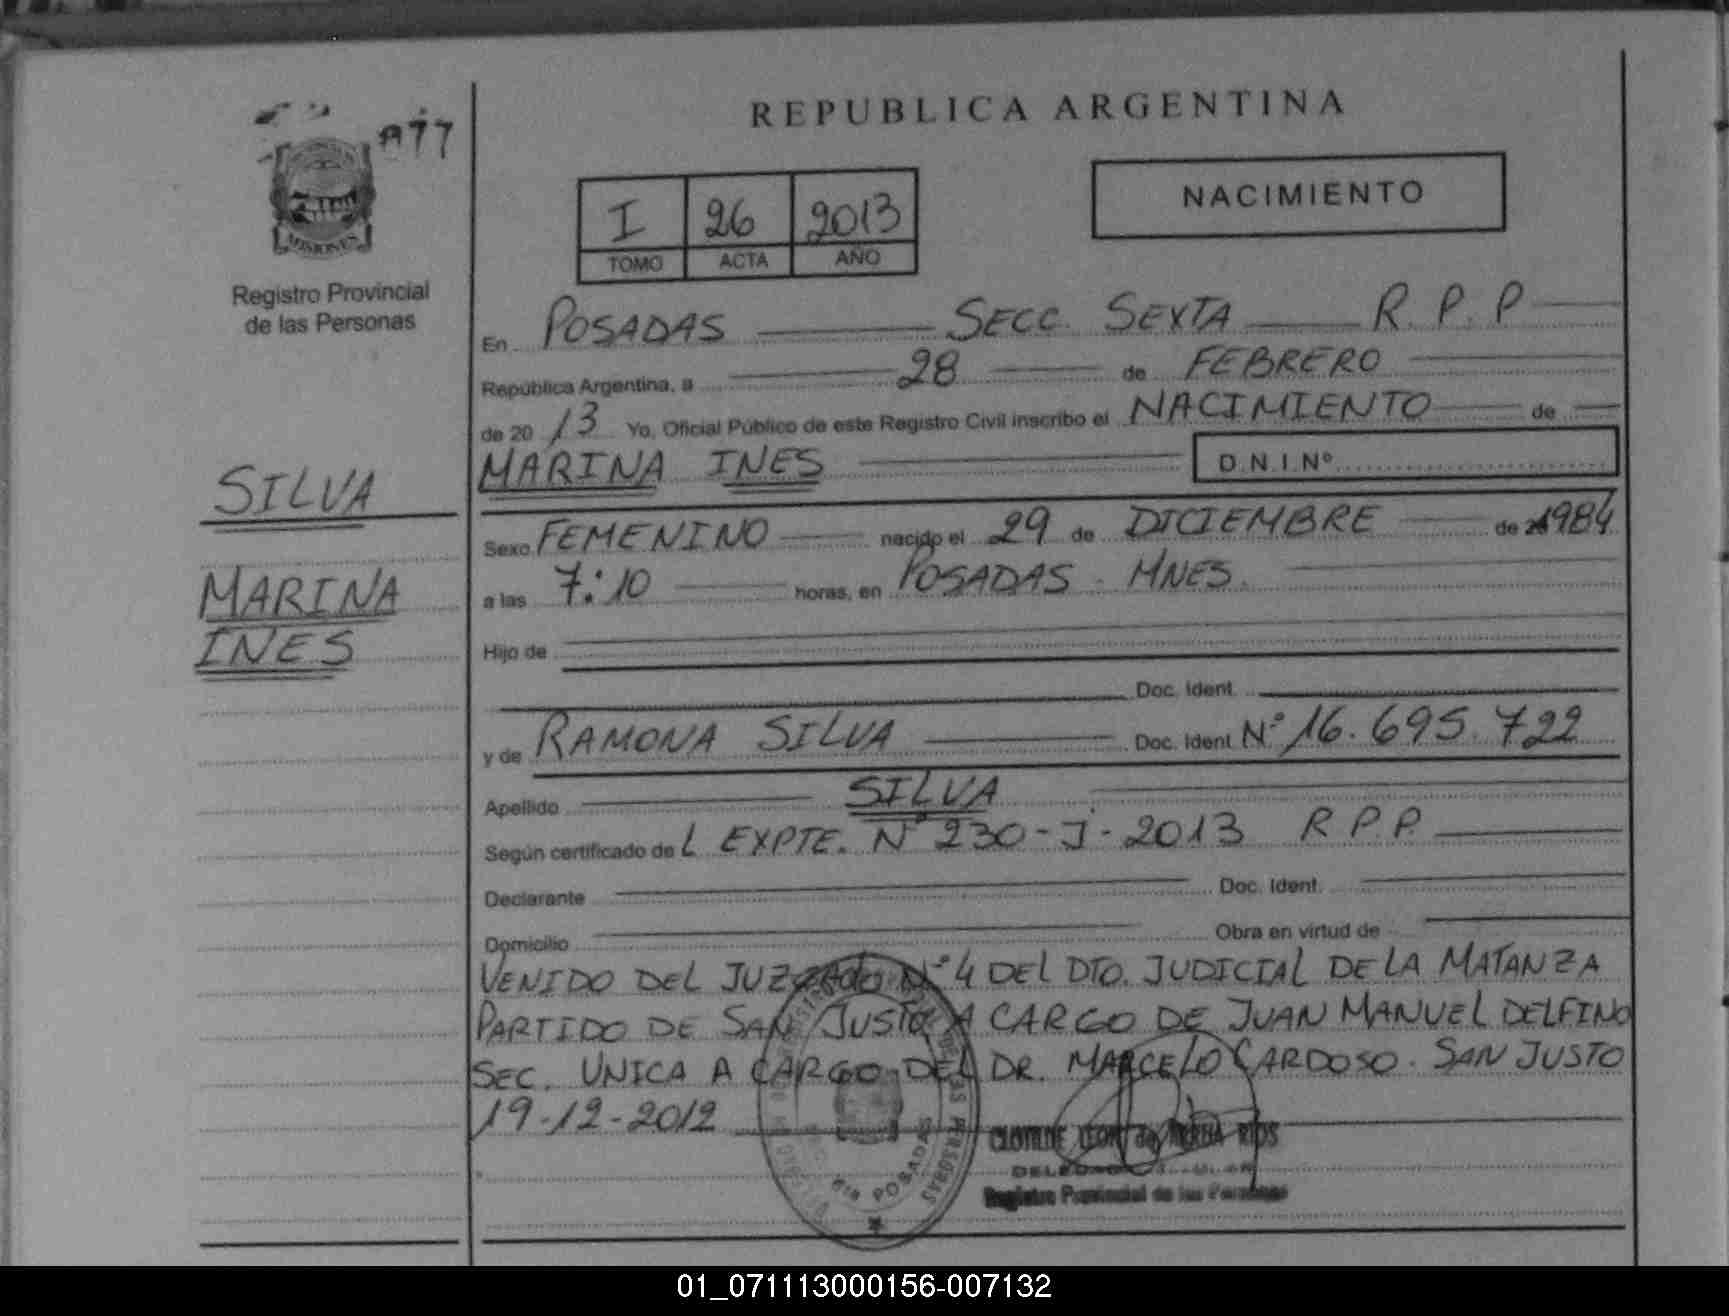 REPUBLICA ARGENTINA
A77
MISIONES
Registro Provincial
de las Personas
I 26 2013
TOMO ACTA AÑO
NACIMIENTO
En POSADAS SECC. SEXTA R.P.P
República Argentina, a 28 de FEBRERO
de 2013 Yo, Oficial Público de este Registro Civil inscribo el NACIMIENTO de
MARINA INES D.N.I.Nº
SILVA
MARINA
INES
Sexo FEMENINO nacido el 29 de DICIEMBRE de 1984
a las 7:10 horas, en POSADAS. MNES.
Hijo de
Doc. Ident.
y de RAMONA SILVA Doc. Ident. Nº 16.695.722
Apellido SILVA
Según certificado de L EXPTE. Nº 230-J-2013 R.P.P.
Declarante Doc. Ident.
Domicilio Obra en virtud de
VENIDO DEL JUZGADO Nº 4 DEL DTO. JUDICIAL DE LA MATANZA
PARTIDO DE SAN JUSTO A CARGO DE JUAN MANUEL DELFINO
SEC. UNICA A CARGO DEL DR. MARCELO CARDOSO. SAN JUSTO
19-12-2012
6ta POSADAS
DE LAS PERSONAS
CLOTILDE RIOS
Registro Provincial de las Personas
01_071113000156-007132